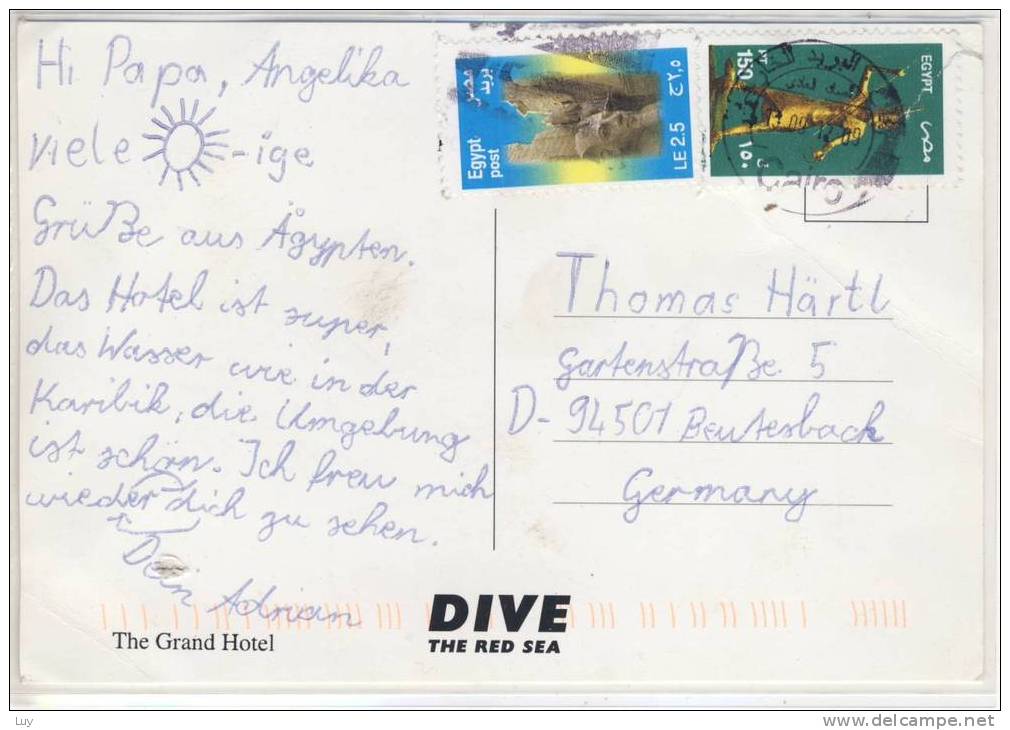 Hi Papa, Angelika
viele -ige
Grüße aus Ägypten.
Das Hotel ist super,
das Wasser wie in der
Karibik, die Umgebung
ist schön. Ich freu mich
wieder dich zu sehen.
Dein Adrian
The Grand Hotel
DIVE
THE RED SEA
Egypt
post
بريد
مصر
LE 2.5
ج ٢,٥
EGYPT
مصر
PT
150
١٥٠
Cairo
Thomas Härtl
Gartenstraße 5
D-94501 Beutesback
Germany
Luy
www.delcampe.net